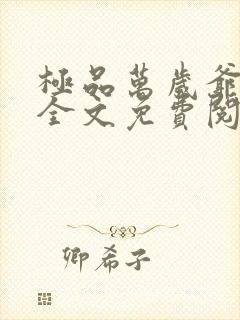 極品萬歲爺
全文免費閱
卿希子